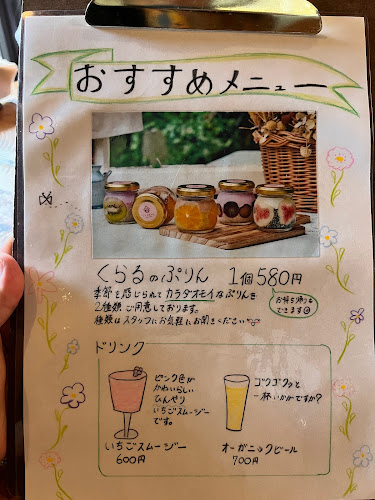 おすすめメニュー
くらるのぷりん 1個580円
季節を感じられてカラダオモイなぷりんを
2種類ご用意しております。
種類はスタッフにお気軽にお聞きください
お持ち帰り
できます
ドリンク
ピンク色が
かわいらしい
ひんやり
いちごスムージー
です。
いちごスムージー
600円
ゴクゴクっと
一杯いかがですか?
オーガニックビール
700円